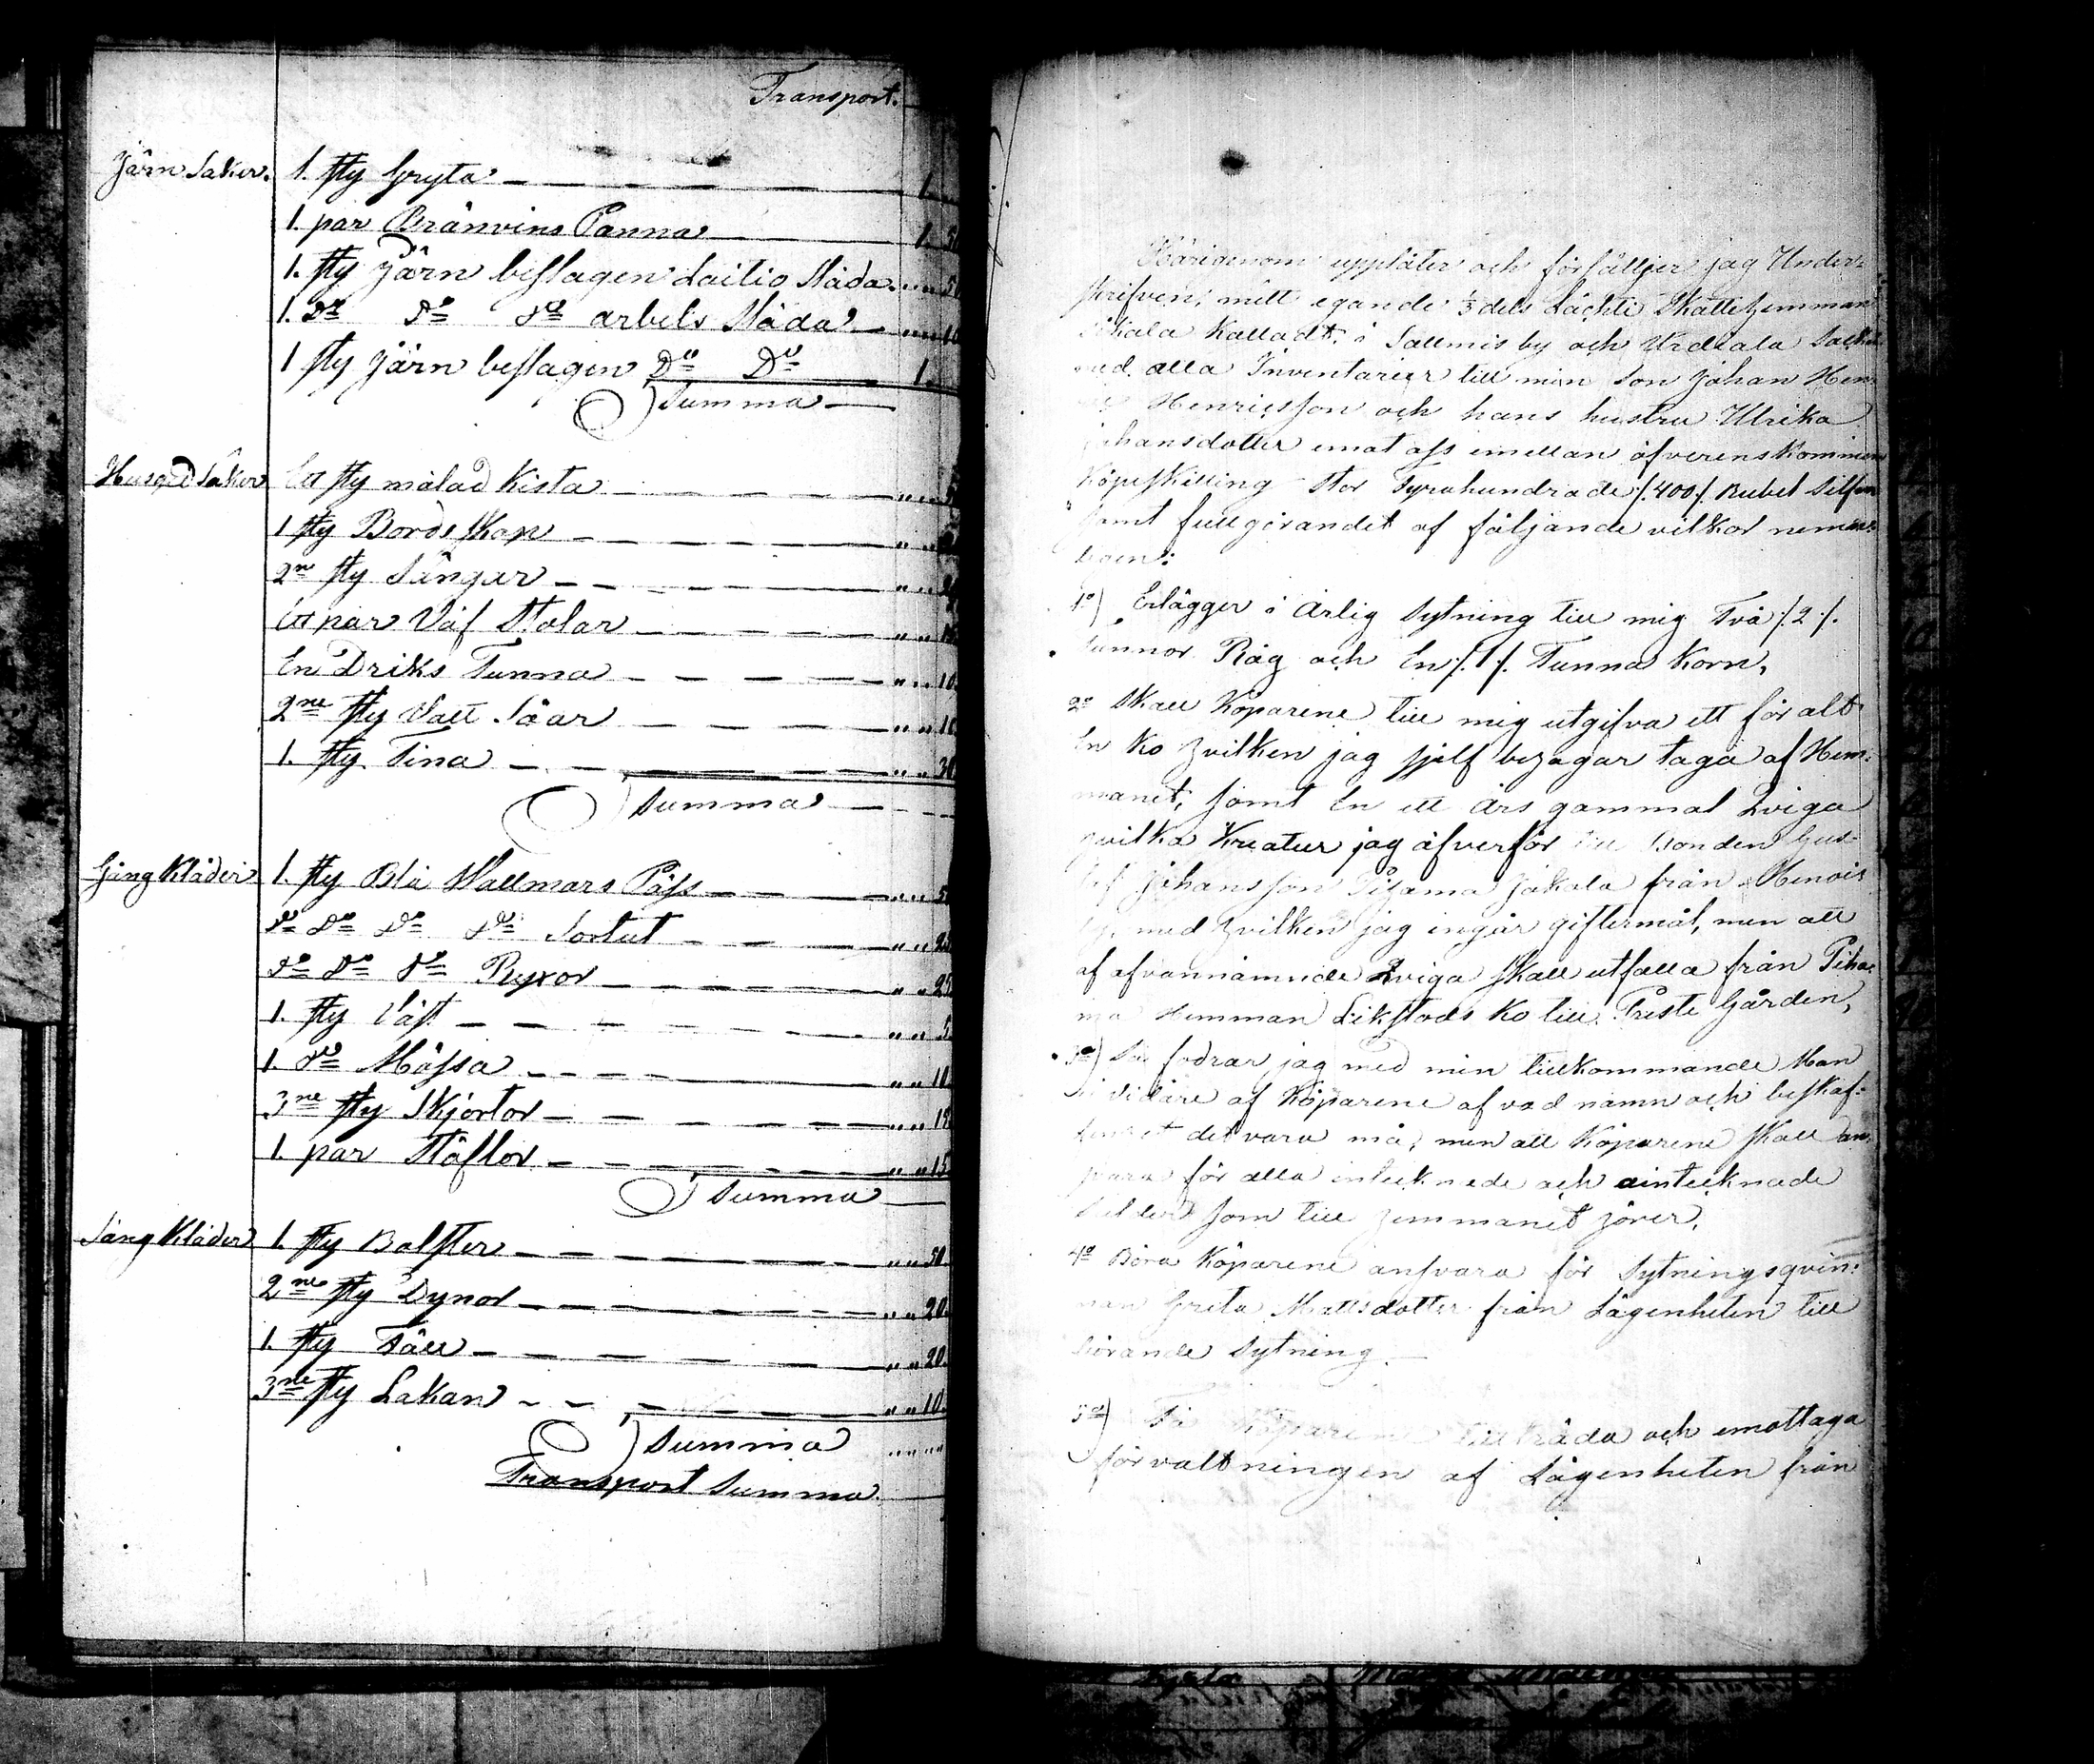 Transport.
Järn Saker. 1. sty Gryta 1.
1. par Bränvins Panna 1. 50
1. sty Järn besslagen Laitio Släda 50
1. Do Do do arbets Släda
1 sty Järn besslagen Do Do 1.
Summa
Husgeråd Saker Ett sty målad Kista
1 sty Bords skap
2ne sty Sängar
Ett par Väf Stolar
En Driks Tunna 10.
2ne sty Vatt Såar
1. sty Tina 30
Summa
Gång Kläder 1. sty Blå Wallmars Päss 50
do do do do Sortut
do do do Byxor 25
1. sty Väst 5
1. do Mössa 10
3ne sty Skjortor
1. par Stöflor 15
Summa
Säng Kläder 1. sty Bolster 50
2ne sty Dynor 20.
1. sty Fäll 20.
3ne sty Lakan 10.
Summa
Transport Summa
Härigenom upplåter och försälljer jag Under=
skrifven; mitt egande 1/3 dels Lächti Skattehemman
kalladt, i Sallmis by och Urdiala Sockn
med alla Inventarier till min Son Johan Hen=
Henricsson och hans hustru Ulrika
Johansdotter emot oss emellan öfverenskommen
Köpeskilling stor Fyrahundrade /:400:/ Rubel Silfver
samt fullgörandet af följande vilkor nemm=
ligen:
1o) Erlägger i årlig Sytning till mig Två /:2:/.
tunnor Råg och En /:1:/. Tunna Korn,
2o Skall Köparene till mig utgifva ett för alt
En Ko hvilken jag sjelf behagar taga af Hem=
manet, samt En ett års gammal Qviga
hvilka Kreatur jag öfverför till Bonden Gus=
taf Johansson Jakola från
by, med hvilken jag ingår giftermål, men att
af ofvannämnde Qviga skall utfalla från Piha=
ma Hemman Likstods Ko till Preste Gården,
3o) Så fodrar jag med min tillkommande Man
ei vidare af Köparene af vad namn och beskaf=
fenhet det vara må, men att Köparene skall an=
svara för alla intecknade och ointecknade
Skulder som till hemmanet hörer,
4o Böra Köparene ansvara för Sytningsqvin=
nan Greta Mattsdotter från Lägenheten till
hörande Sytning.
5o) Få Köparene tillträda och emottaga
förvaltningen af Lägenheten från